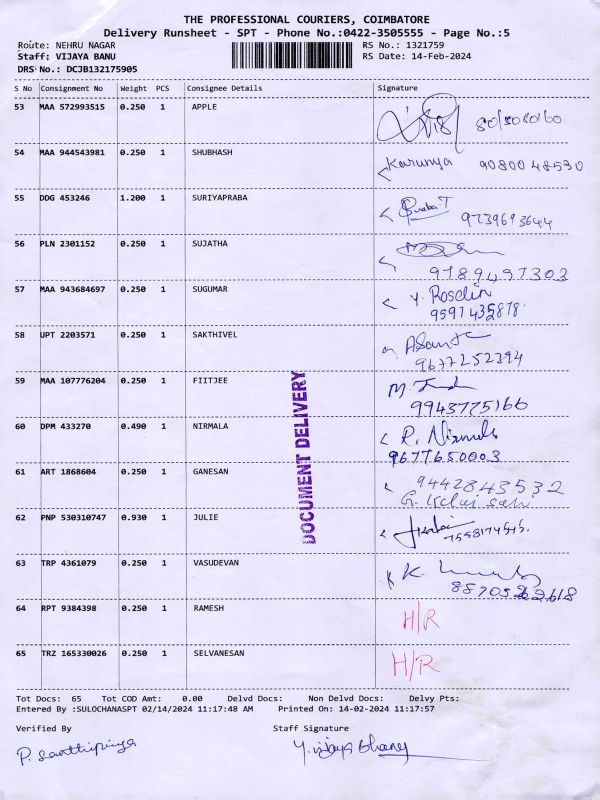 THE PROFESSIONAL COURIERS, COIMBATORE
Delivery Runsheet - SPT - Phone No.:0422-3505555 - Page No.:5
Route: NEHRU NAGAR RS No.: 1321759
Staff: VIJAYA BANU RS Date: 14-Feb-2024
DRS No.: DCJB132175905
S No Consignment No Weight PCS Consignee Details Signature
53 MAA 572993515 0.250 1 APPLE
54 MAA 944543981 0.250 1 SHUBHASH Karunya 9080048530
55 DDG 453246 1.200 1 SURIYAPRABA
9739693644
56 PLN 2301152 0.250 1 SUJATHA
9789497303
57 MAA 943684697 0.250 1 SUGUMAR Y. Roselin
9597435878
58 UPT 2203571 0.250 1 SAKTHIVEL
9677252394
59 MAA 107776204 0.250 1 FIITJEE
9943775166
60 DPM 433270 0.490 1 NIRMALA R. Nirmala
9677650003
61 ART 1868604 0.250 1 GANESAN 9442843532
62 PNP 530310747 0.930 1 JULIE
63 TRP 4361079 0.250 1 VASUDEVAN K.
64 RPT 9384398 0.250 1 RAMESH H/R
65 TRZ 165330026 0.250 1 SELVANESAN H/R
DOCUMENT DELIVERY
Tot Docs: 65 Tot COD Amt: 0.00 Delvd Docs: Non Delvd Docs: Delvy Pts:
Entered By :SULOCHANASPT 02/14/2024 11:17:48 AM Printed On: 14-02-2024 11:17:57
Verified By Staff Signature